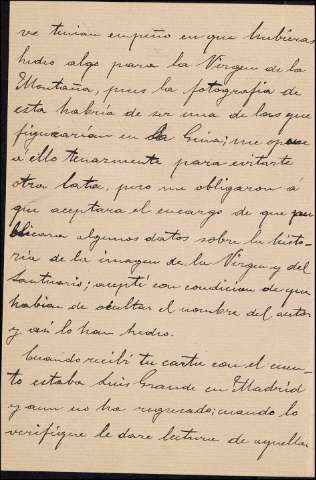 ve tenian empeño en que hubieras
hecho algo para la Virgen de la
Montaña, pues la fotografia de
esta habria de ser una de las que
figurarían en la Guia; me opuse
a ello tenazmente para evitarte
otra lata, pero me obligaron á
que aceptara el encargo de que pu
blicara algunos datos sobre la histo-
ria de la imagen de la Virgen y del
Santuario; acepté con condicion de que
habian de ocultar el nombre del autor
y asi lo han hecho.
Cuando recibí tu carta con el cuen-
to estaba Luis Grande en Madrid
y aun no ha regresado; cuando lo
verifique le dare lectura de aquella